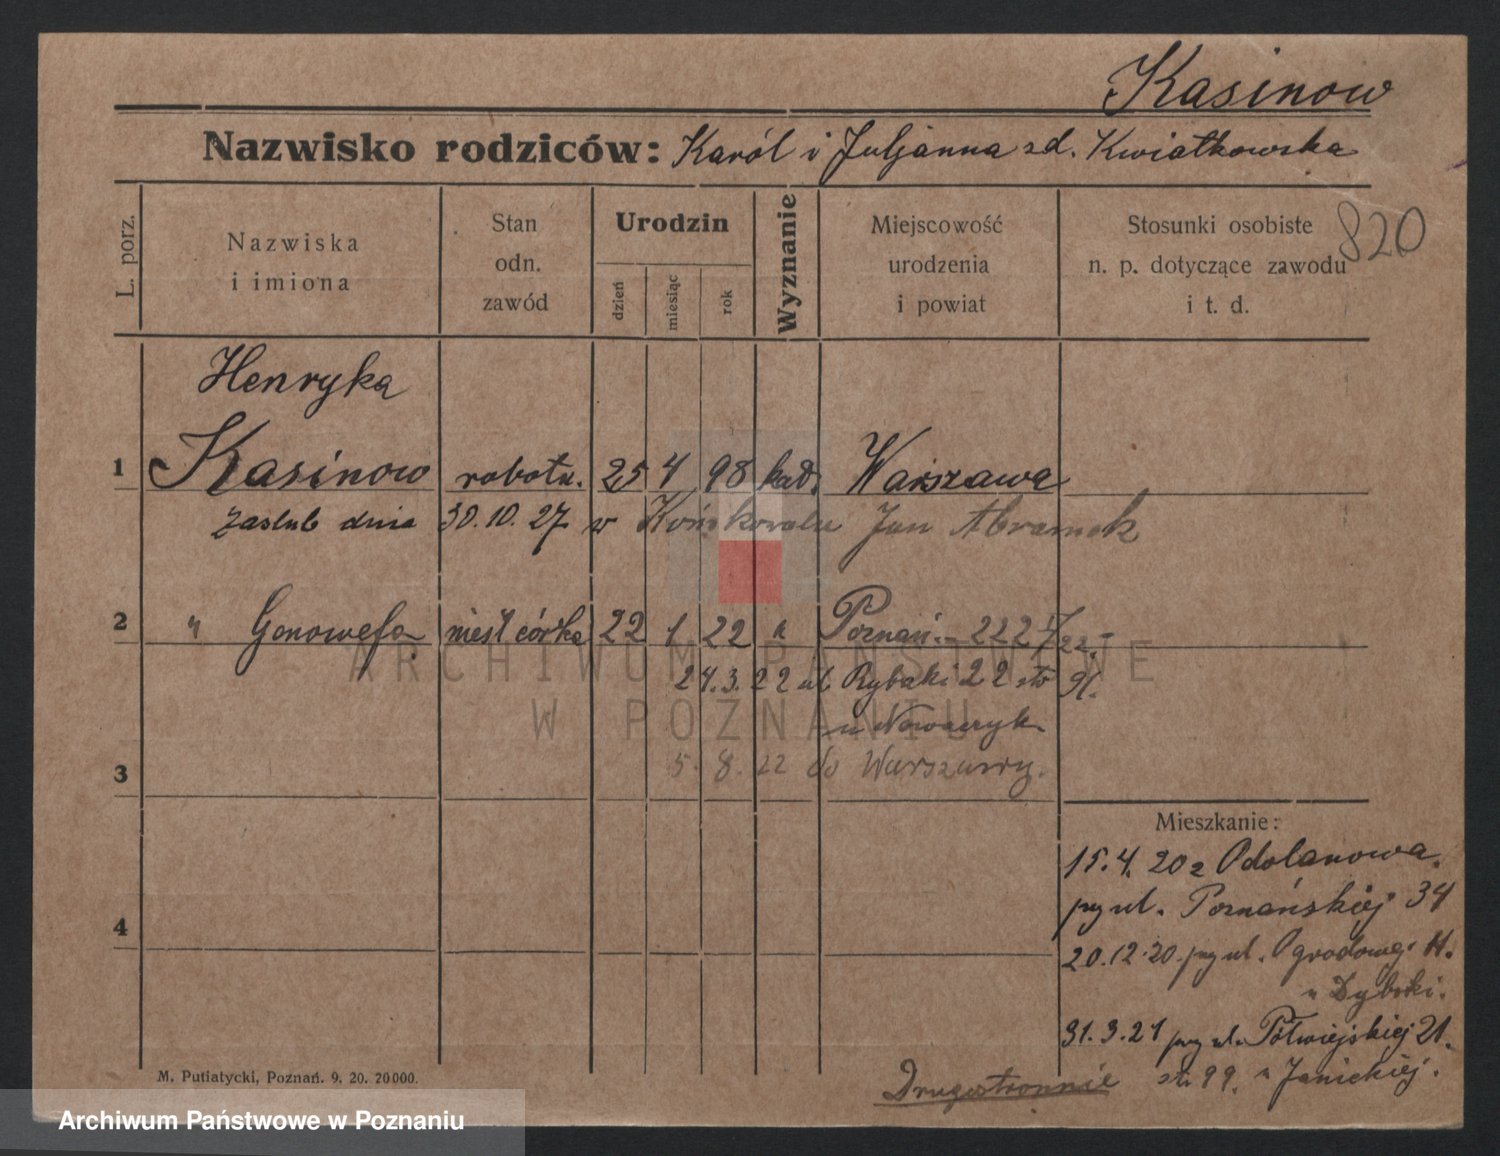 Kasinow
Nazwisko rodziców: Karól i Juljanna zd. Kwiatkowska
820
L. porz.
Nazwiska i imiona
Stan odn. zawód
Urodzin
dzień
miesiąc
rok
Wyznanie
Miejscowość urodzenia i powiat
Stosunki osobiste n. p. dotyczące zawodu i t. d.
Henryka
1 Kasinow robotn. 25 4 98 kat. Warszawa
zaslub dnia 30.10.27 w Jan Abramek
2 " Genowefa nieśl córka 22 1 22 " Poznań. - 222
24.3.22 ul. Rybaki 22 str
u Nowaczyk
3 5.8.22 do Warszawy.
Mieszkanie:
15.4.20 z Odolanowa.
przy ul. Poznańskiej 34
4
20.12.20. przy ul. Ogrodowej 11.
u Dybski.
31.3.21 przy ul. Półwiejskiej 21.
Drugostronnie str. 99. u Janickiej.
M. Putiatycki, Poznań. 9. 20. 20000.
ARCHIWUM PAŃSTWOWE
W POZNANIU
Archiwum Państwowe w Poznaniu